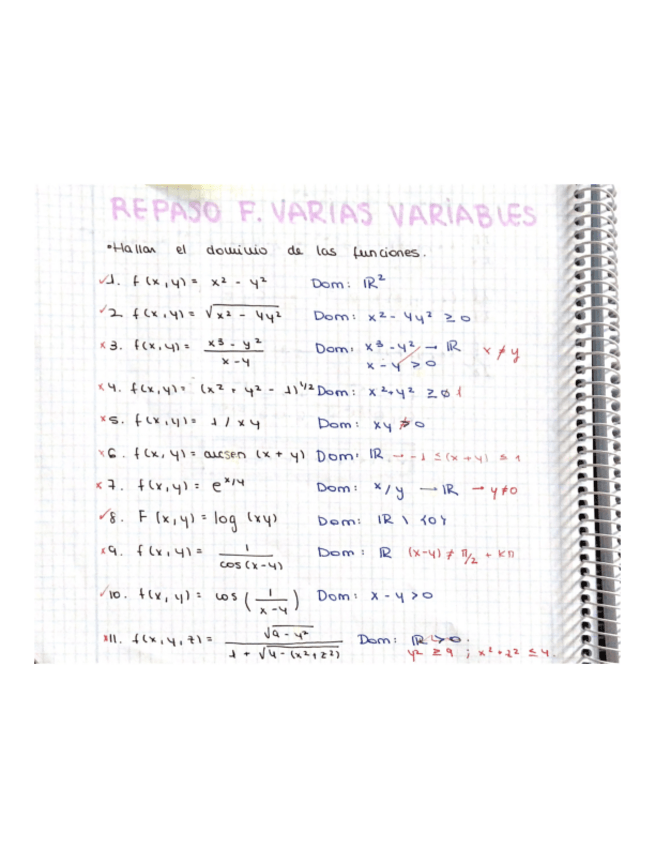 REPASO F. VARIAS VARIABLES
•Hallar el dominio de las funciones.
✓1. f(x,y) = x² - y² Dom: ℝ²
✓2. f(x,y) = √(x² - 4y²) Dom: x² - 4y² ≥ 0
x3. f(x,y) = (x³ - y²)/(x - y) Dom: x³ - y² → ℝ x ≠ y
x - y > 0
x4. f(x,y) = (x² + y² - 1)^1/2 Dom: x² + y² ≥ 0 1
x5. f(x,y) = 1/xy Dom: xy ≠ 0
x6. f(x,y) = arcsen (x + y) Dom: ℝ → -1 ≤ (x + y) ≤ 1
x7. f(x,y) = e^x/y Dom: x/y → ℝ → y≠0
✓8. F(x,y) = log (xy) Dom: ℝ \ {0}
x9. f(x,y) = 1/cos(x-y) Dom: ℝ (x-y) ≠ π/2 + kπ
✓10. f(x,y) = cos (1/(x-y)) Dom: x - y > 0
x11. f(x,y,z) = √(9 - y²)/(1 + √(4 - (x²+z²))) Dom: ℝ > 0.
y² ≥ 9 ; x² + z² ≤ 4.